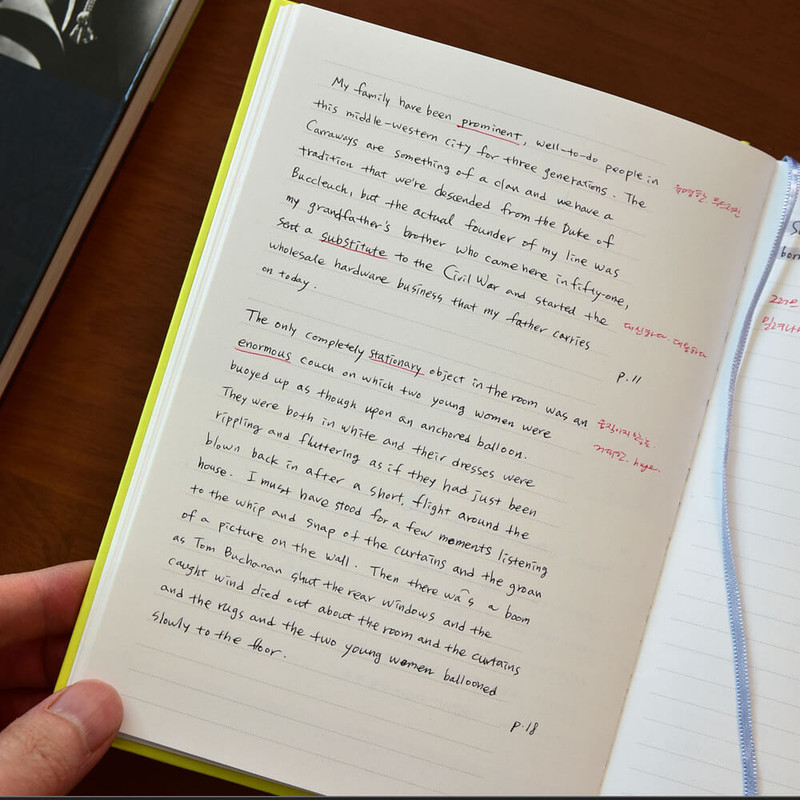 My family have been prominent, well-to-do people in
this middle-western city for three generations. The
Carraways are something of a clan and we have a
tradition that we're descended from the Duke of
Buccleuch, but the actual founder of my line was
my grandfather's brother who came here in fifty-one,
sent a substitute to the Civil War and started the
wholesale hardware business that my father carries
on today.
대신하다. 대용하다
p.11
The only completely stationary object in the room was an
enormous couch on which two young women were
buoyed up as though upon an anchored balloon.
They were both in white and their dresses were
rippling and fluttering as if they had just been
blown back in after a short flight around the
house. I must have stood for a few moments listening
to the whip and snap of the curtains and the groan
of a picture on the wall. Then there was a boom
as Tom Buchanan shut the rear windows and the
caught wind died out about the room and the curtains
and the rugs and the two young women ballooned
slowly to the floor.
움직이지 않는
거대한. huge.
p.18
born